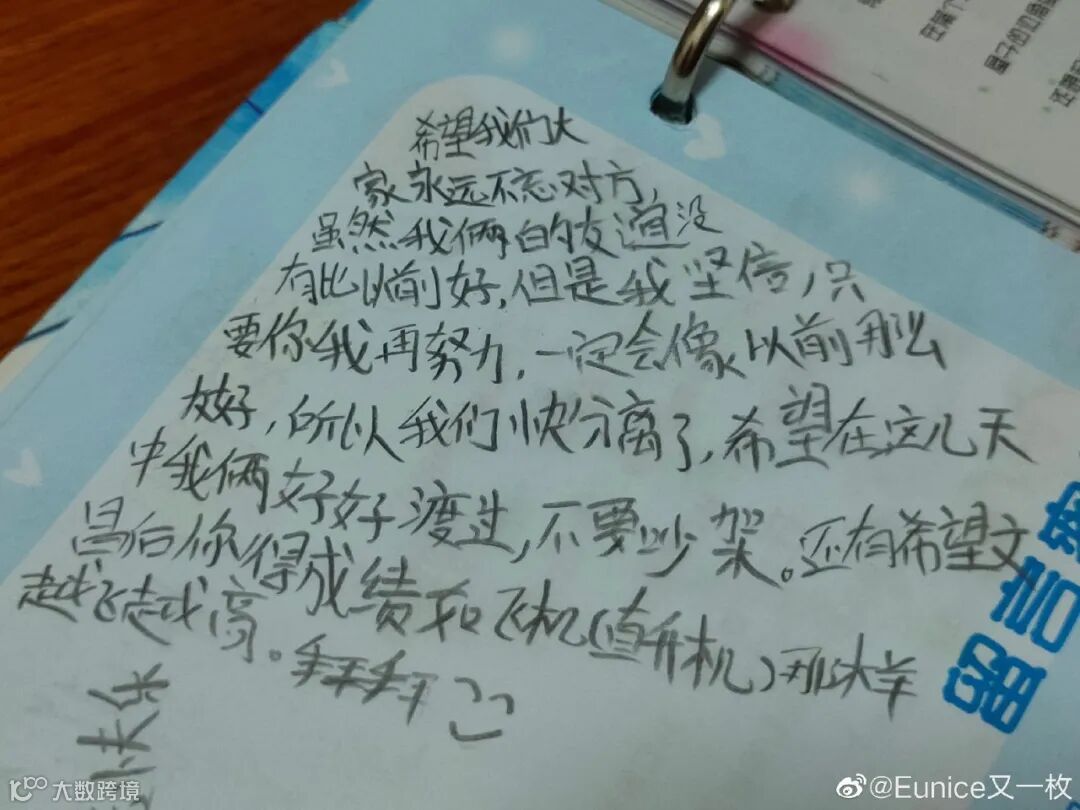 希望我们大
家永远不忘对方,
虽然我俩的友谊没
有比以前好,但是我坚信,只
要你我再努力,一定会像以前那么
友好,所以我们快分离了,希望在这几天
中我俩好好渡过,不要吵架。还有希望文
昌后你得成绩和飞机(直升机)那样
越飞越高。拜拜
快乐
留言
大数跨境
@Eunice又一枚